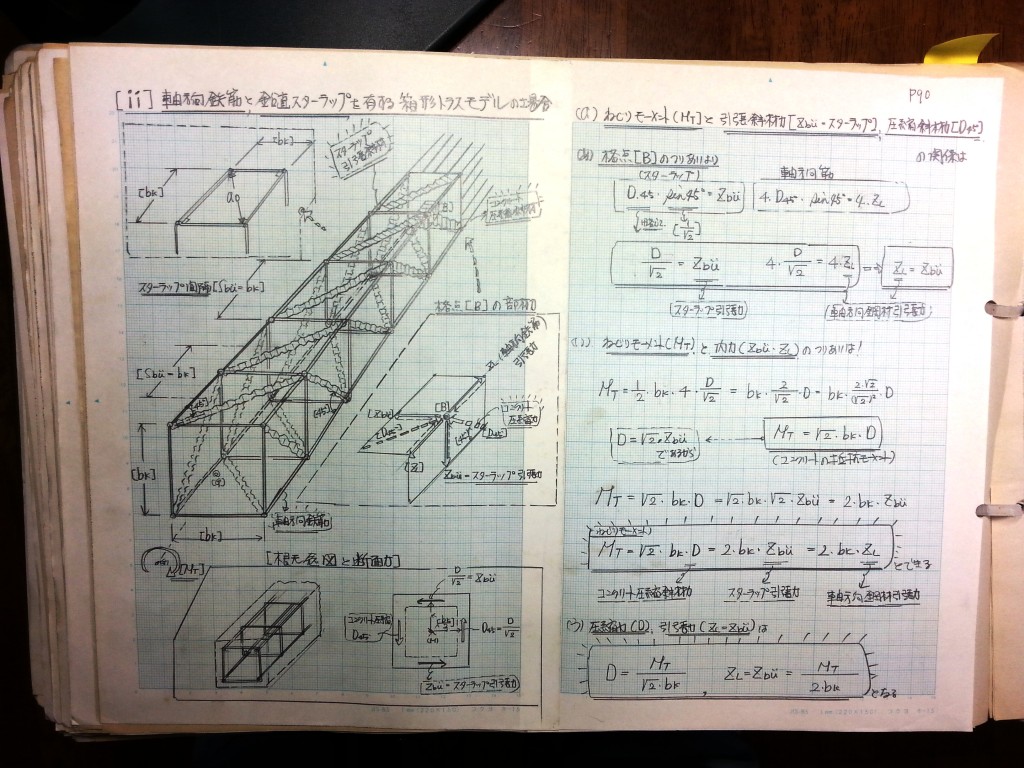 [ii] 軸方向鉄筋と鉛直スターラップを有する箱形トラスモデルの場合
[bk]
[bk]
a
スターラップ
引張斜材
[B]
コンクリート
圧縮斜材
スターラップ間隔[Sbü=bk]
[Sbü=bk]
[45°]
[45°]
[bk]
[bk]
軸方向鉄筋
M[MT]
格点[B]の部材力
ZL(軸方向鉄筋
引張力
[B]
[Zbü]
[D45°]
[D45°]
コンクリート
圧縮力
[Z]
Zbü=スターラップ引張力
[概略図と断面力]
D/√2 = Zbü
コンクリート圧縮
D45
[bk]
(M)
D45 = D/√2
Zbü=スターラップ引張力
P90
(a) ねじりモーメント(MT)と引張斜材力[Zbü=スターラップ], 圧縮斜材力[D45]
の関係は
格点[B]のつりあいより
(スターラップ)
軸方向筋
D45・sin45°=Zbü
4・D45・sin45°=4・ZL
[1/√2]
D/√2 = Zbü
4・D/√2 = 4・ZL
ZL = Zbü
(スターラップ引張力)
(軸方向鋼材引張力)
(い) ねじりモーメント(MT)と内力(Zbü・ZL)のつりあいは!
MT = 1/2・bk・4・D/√2 = bk・2/√2・D = bk・2・√2/(√2)²・D
D=√2・Zbü
であるから
MT = √2・bk・D
(コンクリートの抵抗モーメント)
MT = √2・bk・D = √2・bk・√2・Zbü = 2・bk・Zbü
ねじりモーメント
MT = √2・bk・D = 2・bk・Zbü = 2・bk・ZL
とできる
コンクリート圧縮斜材力
スターラップ引張力
軸方向鋼材引張力
(う) 圧縮力(D), 引張力(ZL=Zbü)は
D = MT/√2・bk , ZL=Zbü = MT/2・bk
となる